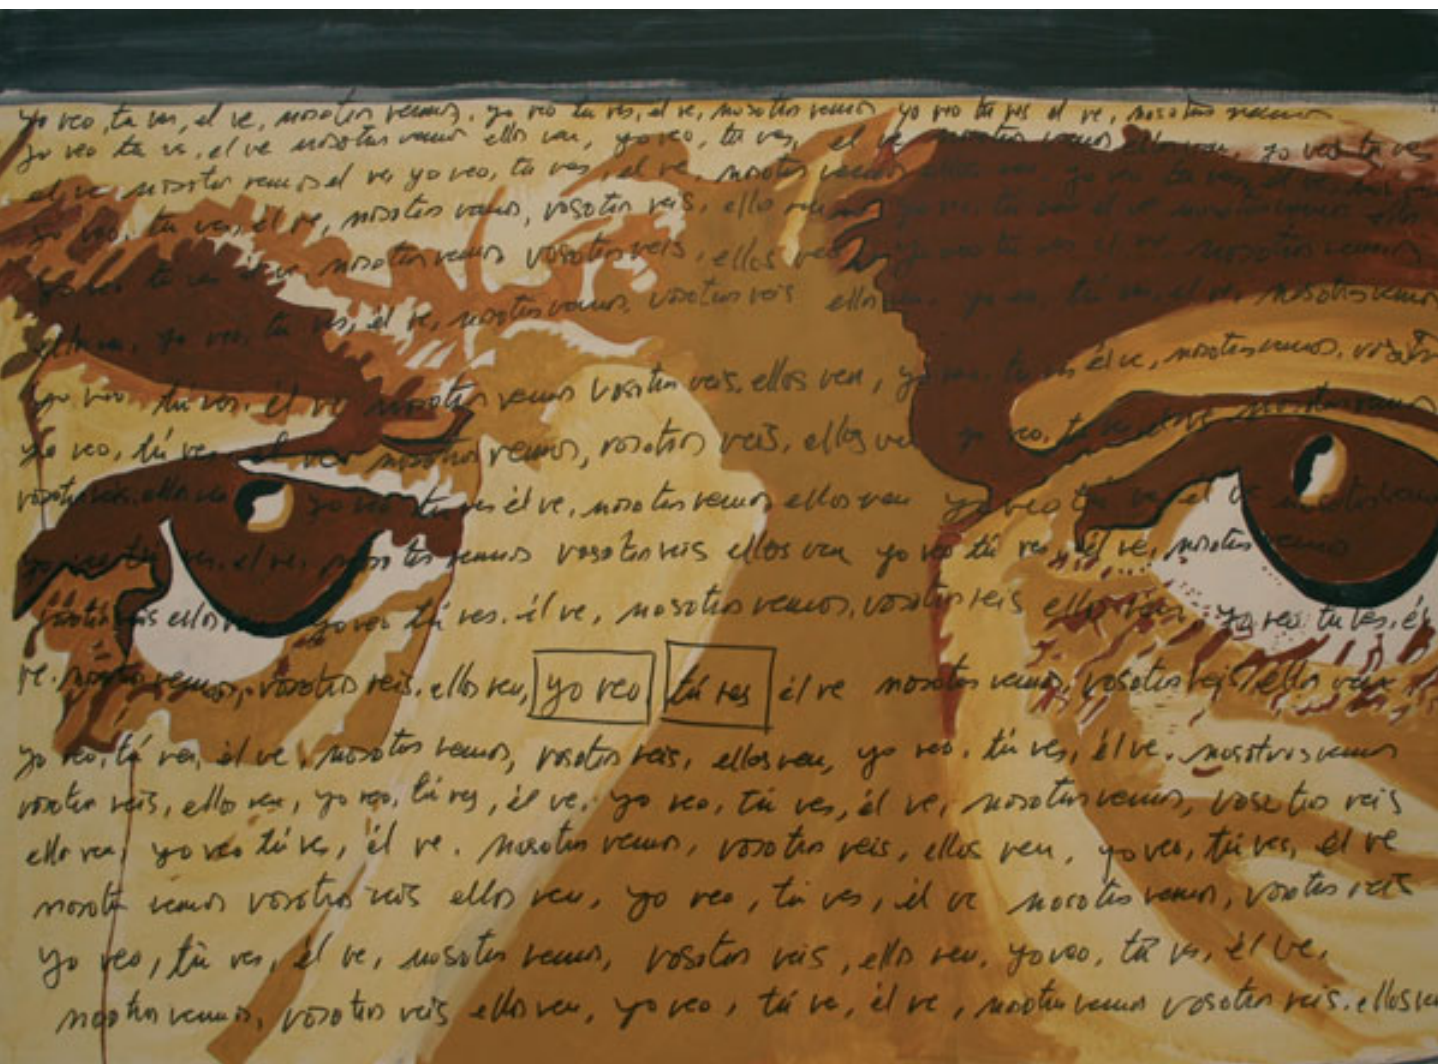 yo veo, tu ves, el ve, nosotros vemos, yo veo tu ves, el ve, nosotros vemos yo veo tu ves el ve, nosotros vemos
yo veo tu ves, el ve nosotros vemos ellos ven, yo veo, tu ves, el ve nosotros vemos ellos ven, yo veo tu ves
el ve nosotros vemos el ve yo veo, tu ves, el ve, nosotros vemos
yo veo, tu ves, el ve, nosotros vemos, vosotros veis, ellos
tu ves él ve nosotros vemos vosotros veis, ellos ven yo veo tu ves él ve, nosotros vemos
ellos ven, yo veo, tu ves, él ve, nosotros vemos, vosotros veis ellos ven, yo veo, tú ves, él ve, nosotros vemos
yo veo, tú ves, él ve nosotros vemos vosotros veis, ellos ven, yo veo, tu ves él ve, nosotros vemos, vosotros
yo veo, tú ves, el ve nosotros vemos, vosotros veis, ellos ven yo veo, tu ves, nosotros vemos
vosotros veis, ellos ven yo veo tu ves él ve, nosotros vemos ellos ven yo veo tú ves el ve nosotros vemos
yo veo tú ves, el ve, nosotros vemos vosotros veis ellos ven yo veo tú ves, él ve, nosotros vemos
vosotros veis ellos ven yo veo tú ves, él ve, nosotros vemos, vosotros veis ellos ven, yo veo, tu ves, él
ve, nosotros vemos, vosotros veis, ellos ven, yo veo tú ves él ve nosotros vemos, vosotros veis, ellos ven
yo veo, tú ves, él ve, nosotros vemos, vosotros veis, ellos ven, yo veo, tú ves, él ve, nosotros vemos
vosotros veis, ellos ven, yo veo, tú ves, él ve, yo veo, tú ves, él ve, nosotros vemos, vosotros veis
ellos ven, yo veo tú ves, él ve, nosotros vemos, vosotros veis, ellos ven, yo veo, tú ves, él ve
nosotros vemos vosotros veis ellos ven, yo veo, tú ves, él ve nosotros vemos, vosotros veis
yo veo, tú ves, él ve, nosotros vemos, vosotros veis, ellos ven, yo veo, tú ves, él ve,
nosotros vemos, vosotros veis ellos ven, yo veo, tú ve, él ve, nosotros vemos vosotros veis, ellos ven